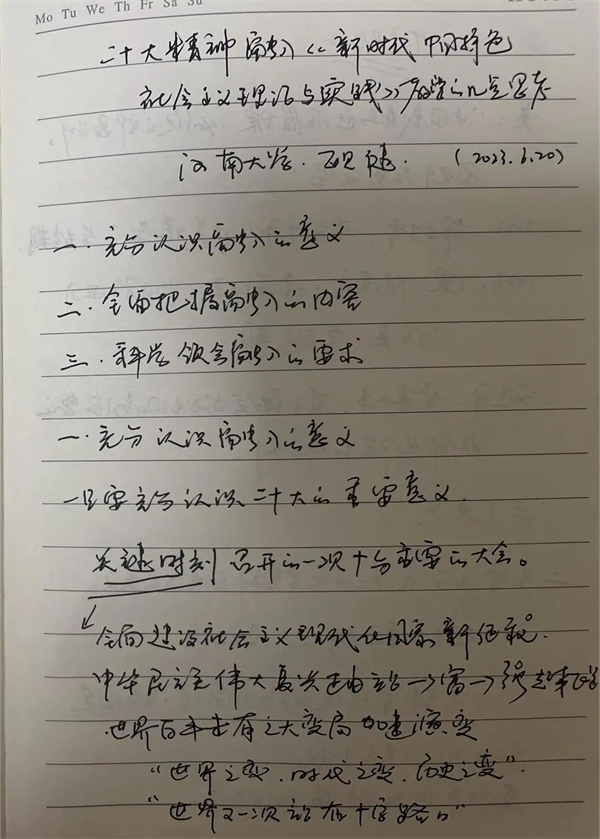 Mo Tu We Th Fr Sa Su
二十大精神融入《新时代中国特色
社会主义理论与实践》教学的几点思考
河南大学.　　(2023.6.20)
一.充分认识融入的意义
二.全面把握融入的内容
三.科学领会融入的要求
一.充分认识融入的意义
一旦要充分认识二十大的重要意义.
关键时刻召开的一次十分重要的大会。
全面建设社会主义现代化国家新征程.
中华民族伟大复兴正由站→富→强起来
世界百年未有之大变局加速演变
“世界之变.时代之变.历史之变”.
“世界又一次站在十字路口”